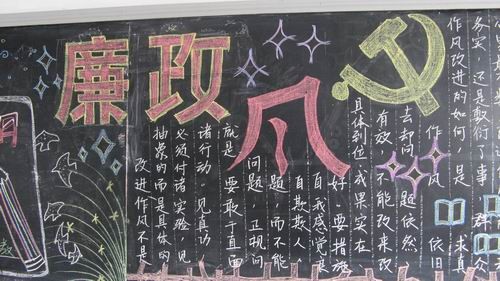 廉政风
改进作风不是
抽象的而是具体的
必须付诸实验,见
诸行动。见真访
就是要敢于直面
问题 正视问
题 而不能
自欺欺人、
自我感觉良
好。要措施
具体到位,成果实在、
有效 不能改来改
去却问题依然
作风依旧
作风改进的如何,是求真
务实,还是敷衍了事 群众